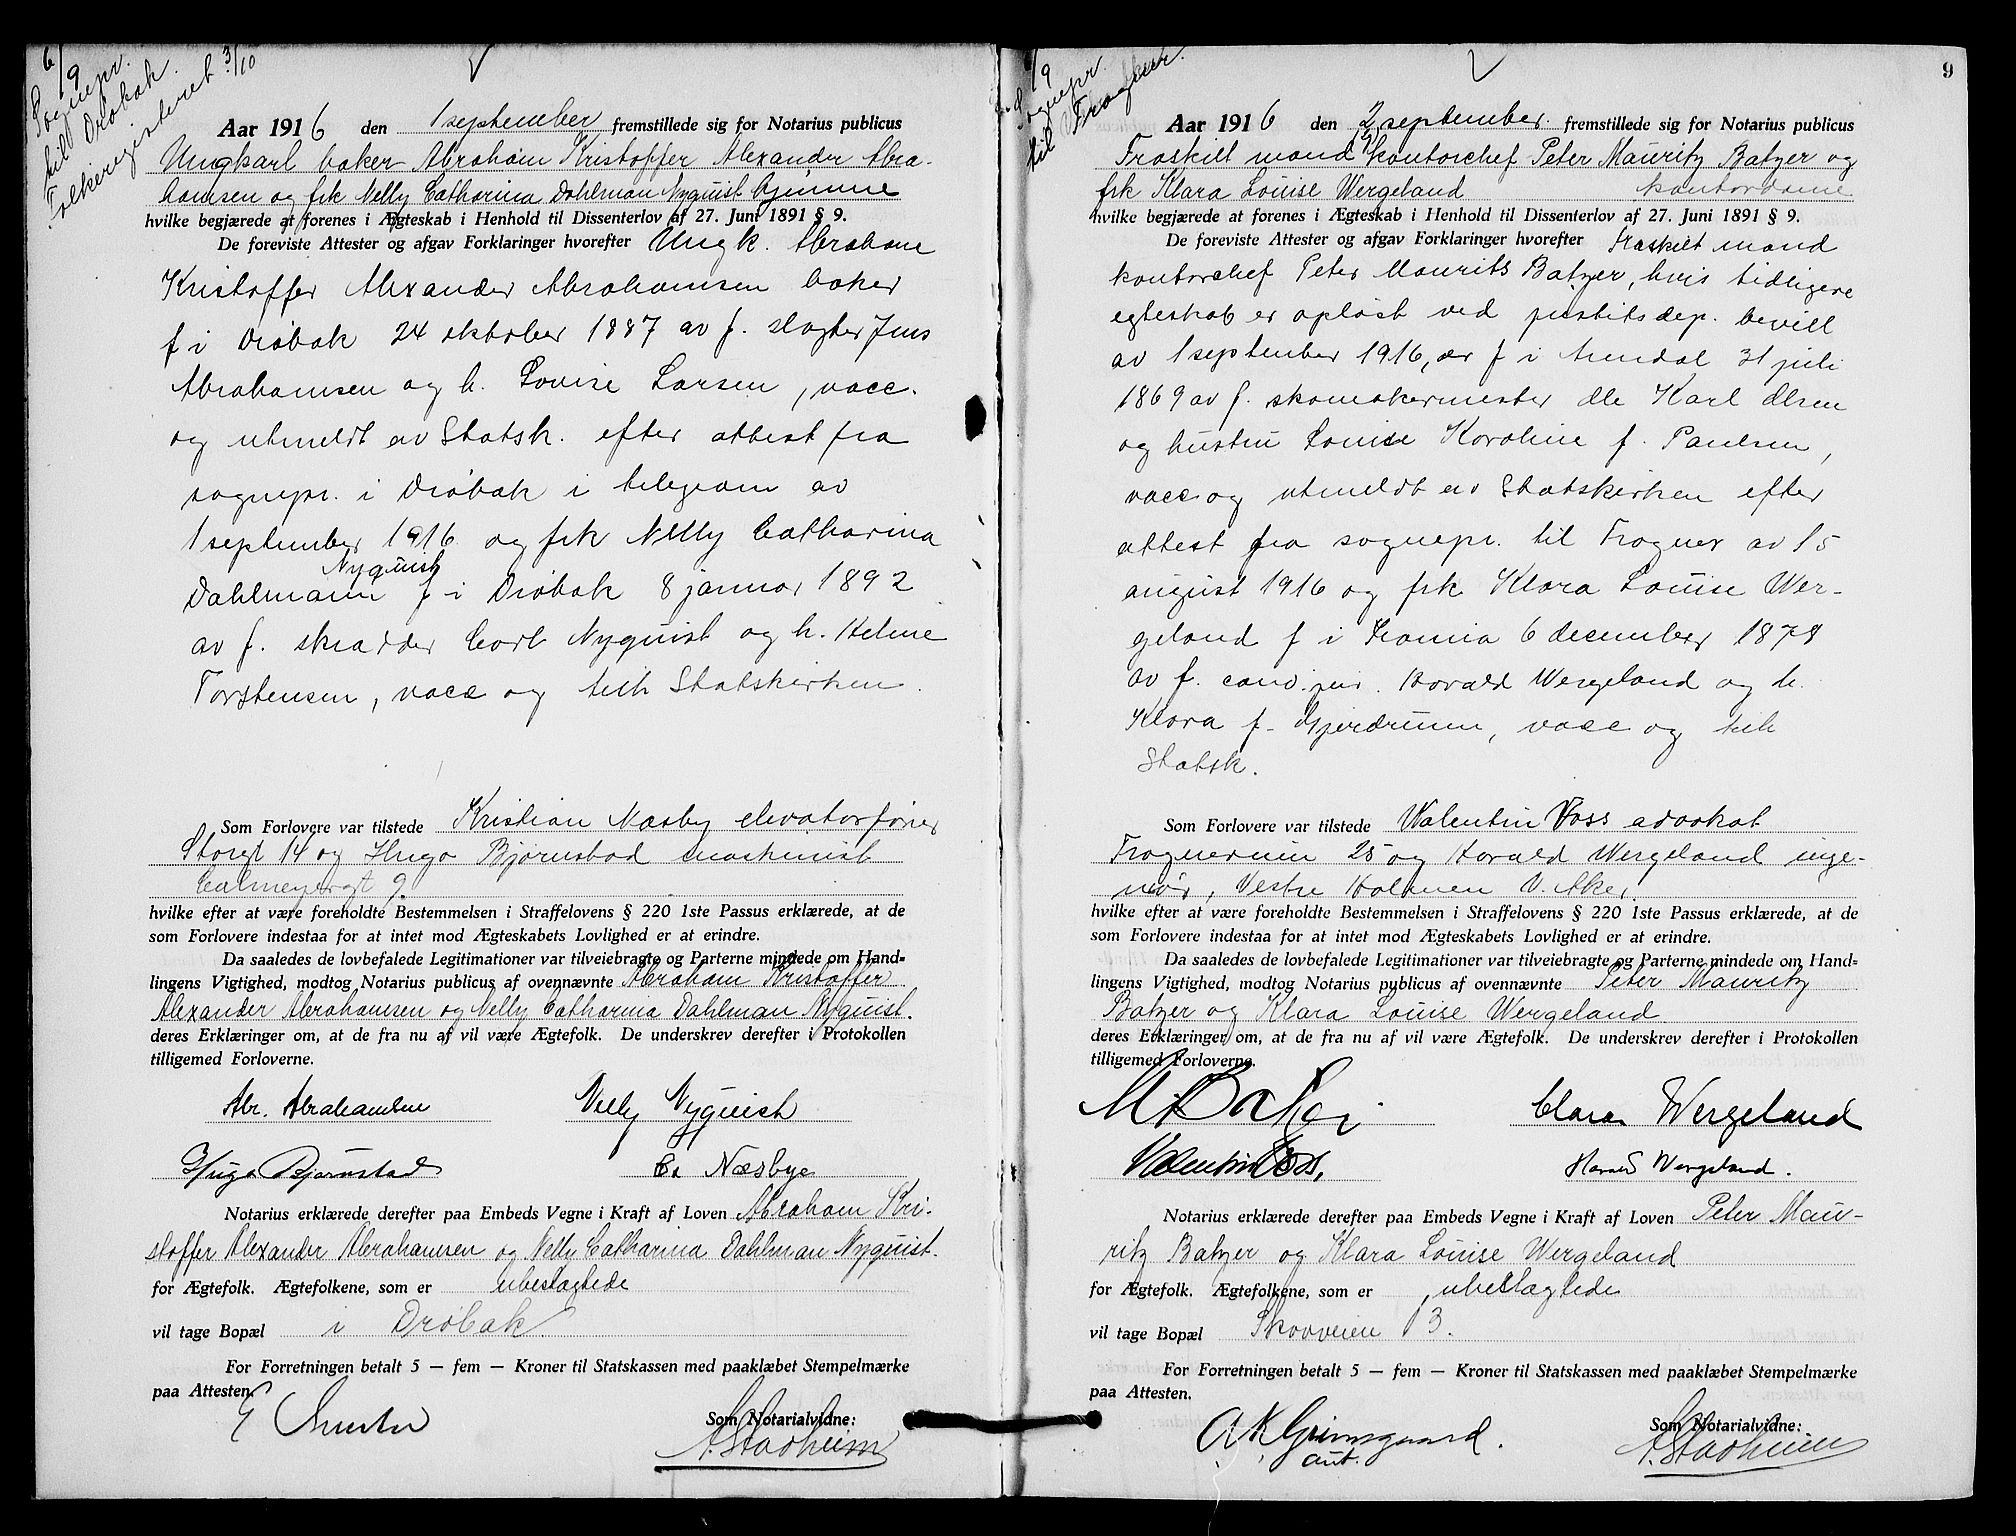 6/9
Sognepr.
til Drøbak.
Folkeregisteret 3/10
Aar 1916 den 1 september fremstillede sig for Notarius publicus
Ungkarl baker Abraham Kristoffer Alexander Abra-
hamsen og frk Nelly Catharina Dahlman Nyquist hjemme
hvilke begjærede at forenes i Ægteskab i Henhold til Dissenterlov af 27. Juni 1891 § 9.
De foreviste Attester og afgav Forklaringer hvorefter Ungk. Abraham
Kristoffer Alexander Abrahamsen baker
f i Drøbak 24 oktober 1887 av f. slagter Jens
Abrahamsen og h. Lovise Larsen, vacc.
og utmeldt av Statsk. efter attest fra
sognepr. i Drøbak i telegram av
1 september 1916 og frk Nelly Catharina
Nyquist
Dahlmann f i Drøbak 8 januar 1892
av f. skrædder Carl Nyquist og h. Helene
Torstensen, vacc og tilh Statskirken.
Som Forlovere var tilstede Kristian Næsby elevatorfører
Storgt 14 og Hugo Bjørnstad maskinist
Calmeyergt 9.
hvilke efter at være foreholdte Bestemmelsen i Straffelovens § 220 1ste Passus erklærede, at de
som Forlovere indestaa for at intet mod Ægteskabets Lovlighed er at erindre.
Da saaledes de lovbefalede Legitimationer var tilveiebragte og Parterne mindede om Hand-
lingens Vigtighed, modtog Notarius publicus af ovennævnte Abraham Kristoffer
Alexander Abrahamsen og Nelly Catharina Dahlman Nyquist.
deres Erklæringer om, at de fra nu af vil være Ægtefolk. De underskrev derefter i Protokollen
tilligemed Forloverne.
Abr. Abrahamsen Nelly Nyquist
Hugo Bjørnstad Næsbye
Notarius erklærede derefter paa Embeds Vegne i Kraft af Loven Abraham Kri-
stoffer Alexander Abrahamsen og Nelly Catharina Dahlman Nyquist.
for Ægtefolk. Ægtefolkene, som er ubeslægtede
vil tage Bopæl i Drøbak
For Forretningen betalt 5 — fem — Kroner til Statskassen med paaklæbet Stempelmærke
paa Attesten.
Som Notarialvidne:
A. Stadheim
9
/9
Sognepr.
til Frogner.
Aar 1916 den 2 september. fremstillede sig for Notarius publicus
Fraskilt mand kontorchef Peter Mauritz Batzer og
frk Klara Louise Wergeland kontordame
hvilke begjærede at forenes i Ægteskab i Henhold til Dissenterlov af 27. Juni 1891 § 9.
De foreviste Attester og afgav Forklaringer hvorefter fraskilt mand
kontorchef Peter Maurits Batzer, hvis tidligere
egteskab er opløst ved justitsdep. bevill
av 1 september 1916, er f i Arendal 31 juli
1869 av f. skomakermester Ole Karl Olsen
og hustru Louise Karoline f. Paulsen,
vacc og utmeldt av Statskirken efter
attest fra sognepr. til Frogner av 15
august 1916 og frk Klara Louise Wer-
geland f i Krania 6 december 1878
av f. cand. jur. Harald Wergeland og h.
Klara f. Gjerdrum, vacc og tilh
Statsk.
Som Forlovere var tilstede Valentin Voss advokat
Frognerveien 25 og Harald Wergeland inge-
niør, Vestre Holmen V. Aker.
hvilke efter at være foreholdte Bestemmelsen i Straffelovens § 220 1ste Passus erklærede, at de
som Forlovere indestaa for at intet mod Ægteskabets Lovlighed er at erindre.
Da saaledes de lovbefalede Legitimationer var tilveiebragte og Parterne mindede om Hand-
lingens Vigtighed, modtog Notarius publicus af ovennævnte Peter Mauritz
Batzer og Klara Louise Wergeland
deres Erklæringer om, at de fra nu af vil være Ægtefolk. De underskrev derefter i Protokollen
tilligemed Forloverne.
M. Batzer Clara Wergeland
Valentin Voss, Harald Wergeland.
Notarius erklærede derefter paa Embeds Vegne i Kraft af Loven Peter Mau-
ritz Batzer og Klara Louise Wergeland
for Ægtefolk. Ægtefolkene, som er ubeslægtede
vil tage Bopæl Skovveien 13.
For Forretningen betalt 5 — fem — Kroner til Statskassen med paaklæbet Stempelmærke
paa Attesten.
A. K. Grimsgaard.
aut.
Som Notarialvidne:
A. Stadheim